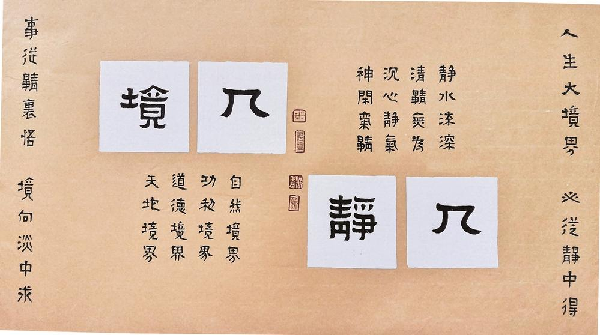 人生大境界 必從靜中得
靜水流深
清靜無為
沉心靜氣
神閒氣靜
几靜
几境
自然境界
功利境界
道德境界
天地境界
事從靜裏悟 境向淡中求